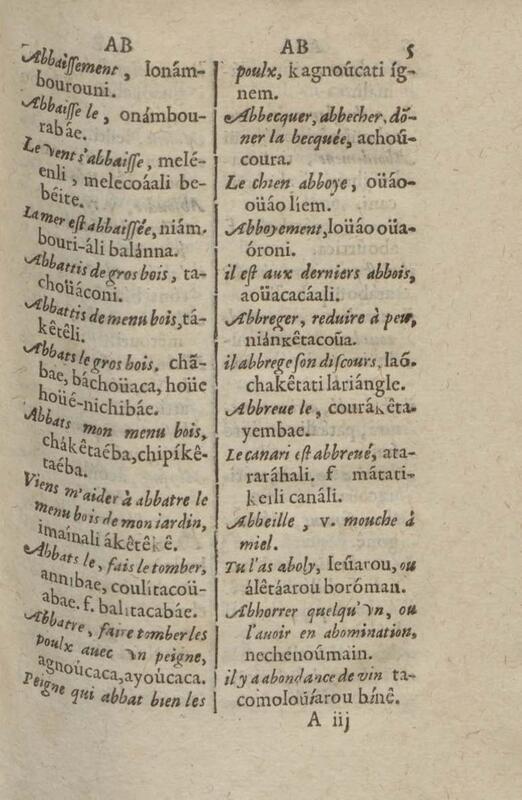 AB
Abbaiſſement, Ionám-
bourouni.
Abbaiſſe le, onámbou-
rabáe.
Le vent s'abbaiſſe, melé-
enli, melecoáali be-
béite.
La mer eſt abbaiſſée, niám.
bouri-áli balánna.
Abbattis de gros bois, ta-
choüáconi.
Abbattis de menu bois, tá-
kêtêli.
Abbats le gros bois. chã-
bae, báchoüaca, hoüe
hoüé-nichibáe.
Abbats mon menu bois,
chákêtaéba, chipíkê-
taéba.
Viens m'aider à abbatre le
menu bois de mon iardin,
imaínali ákêtêkê.
Abbats le, fais le tomber,
annibae, coulitacoü-
abae. f. balitacabáe.
Abbatre, faire tomber les
poulx auec vn peigne,
agnoúcaca, ayoúcaca.
Peigne qui abbat bien les
AB 5
poulx, kagnoúcati íg-
nem.
Abbecquer, abbecher, dõ-
ner la becquée, achoũ-
coura.
Le chien abboye, oüáo-
oüáo líem.
Abboyement, loüáo oüa-
óroni.
il eſt aux derniers abbois,
aoüacacáali.
Abbreger, reduire à peu,
niánkêtacoüa.
il abbrege ſon diſcours, laó.
chakêtati láriángle.
Abbreue le, courákêta-
yembae.
Le canari eſt abbreué, ata-
raráhali. f mátati-
keili canáli.
Abbeille, v. mouche à
miel.
Tu l'as aboly, Ieúarou, ou
álêtáarou boróman.
Abhorrer quelqu'vn, ou
l'auoir en abomination,
nechenoúmain.
il y a abondance de vin ta-
comoloüíarou bínê.
A iij